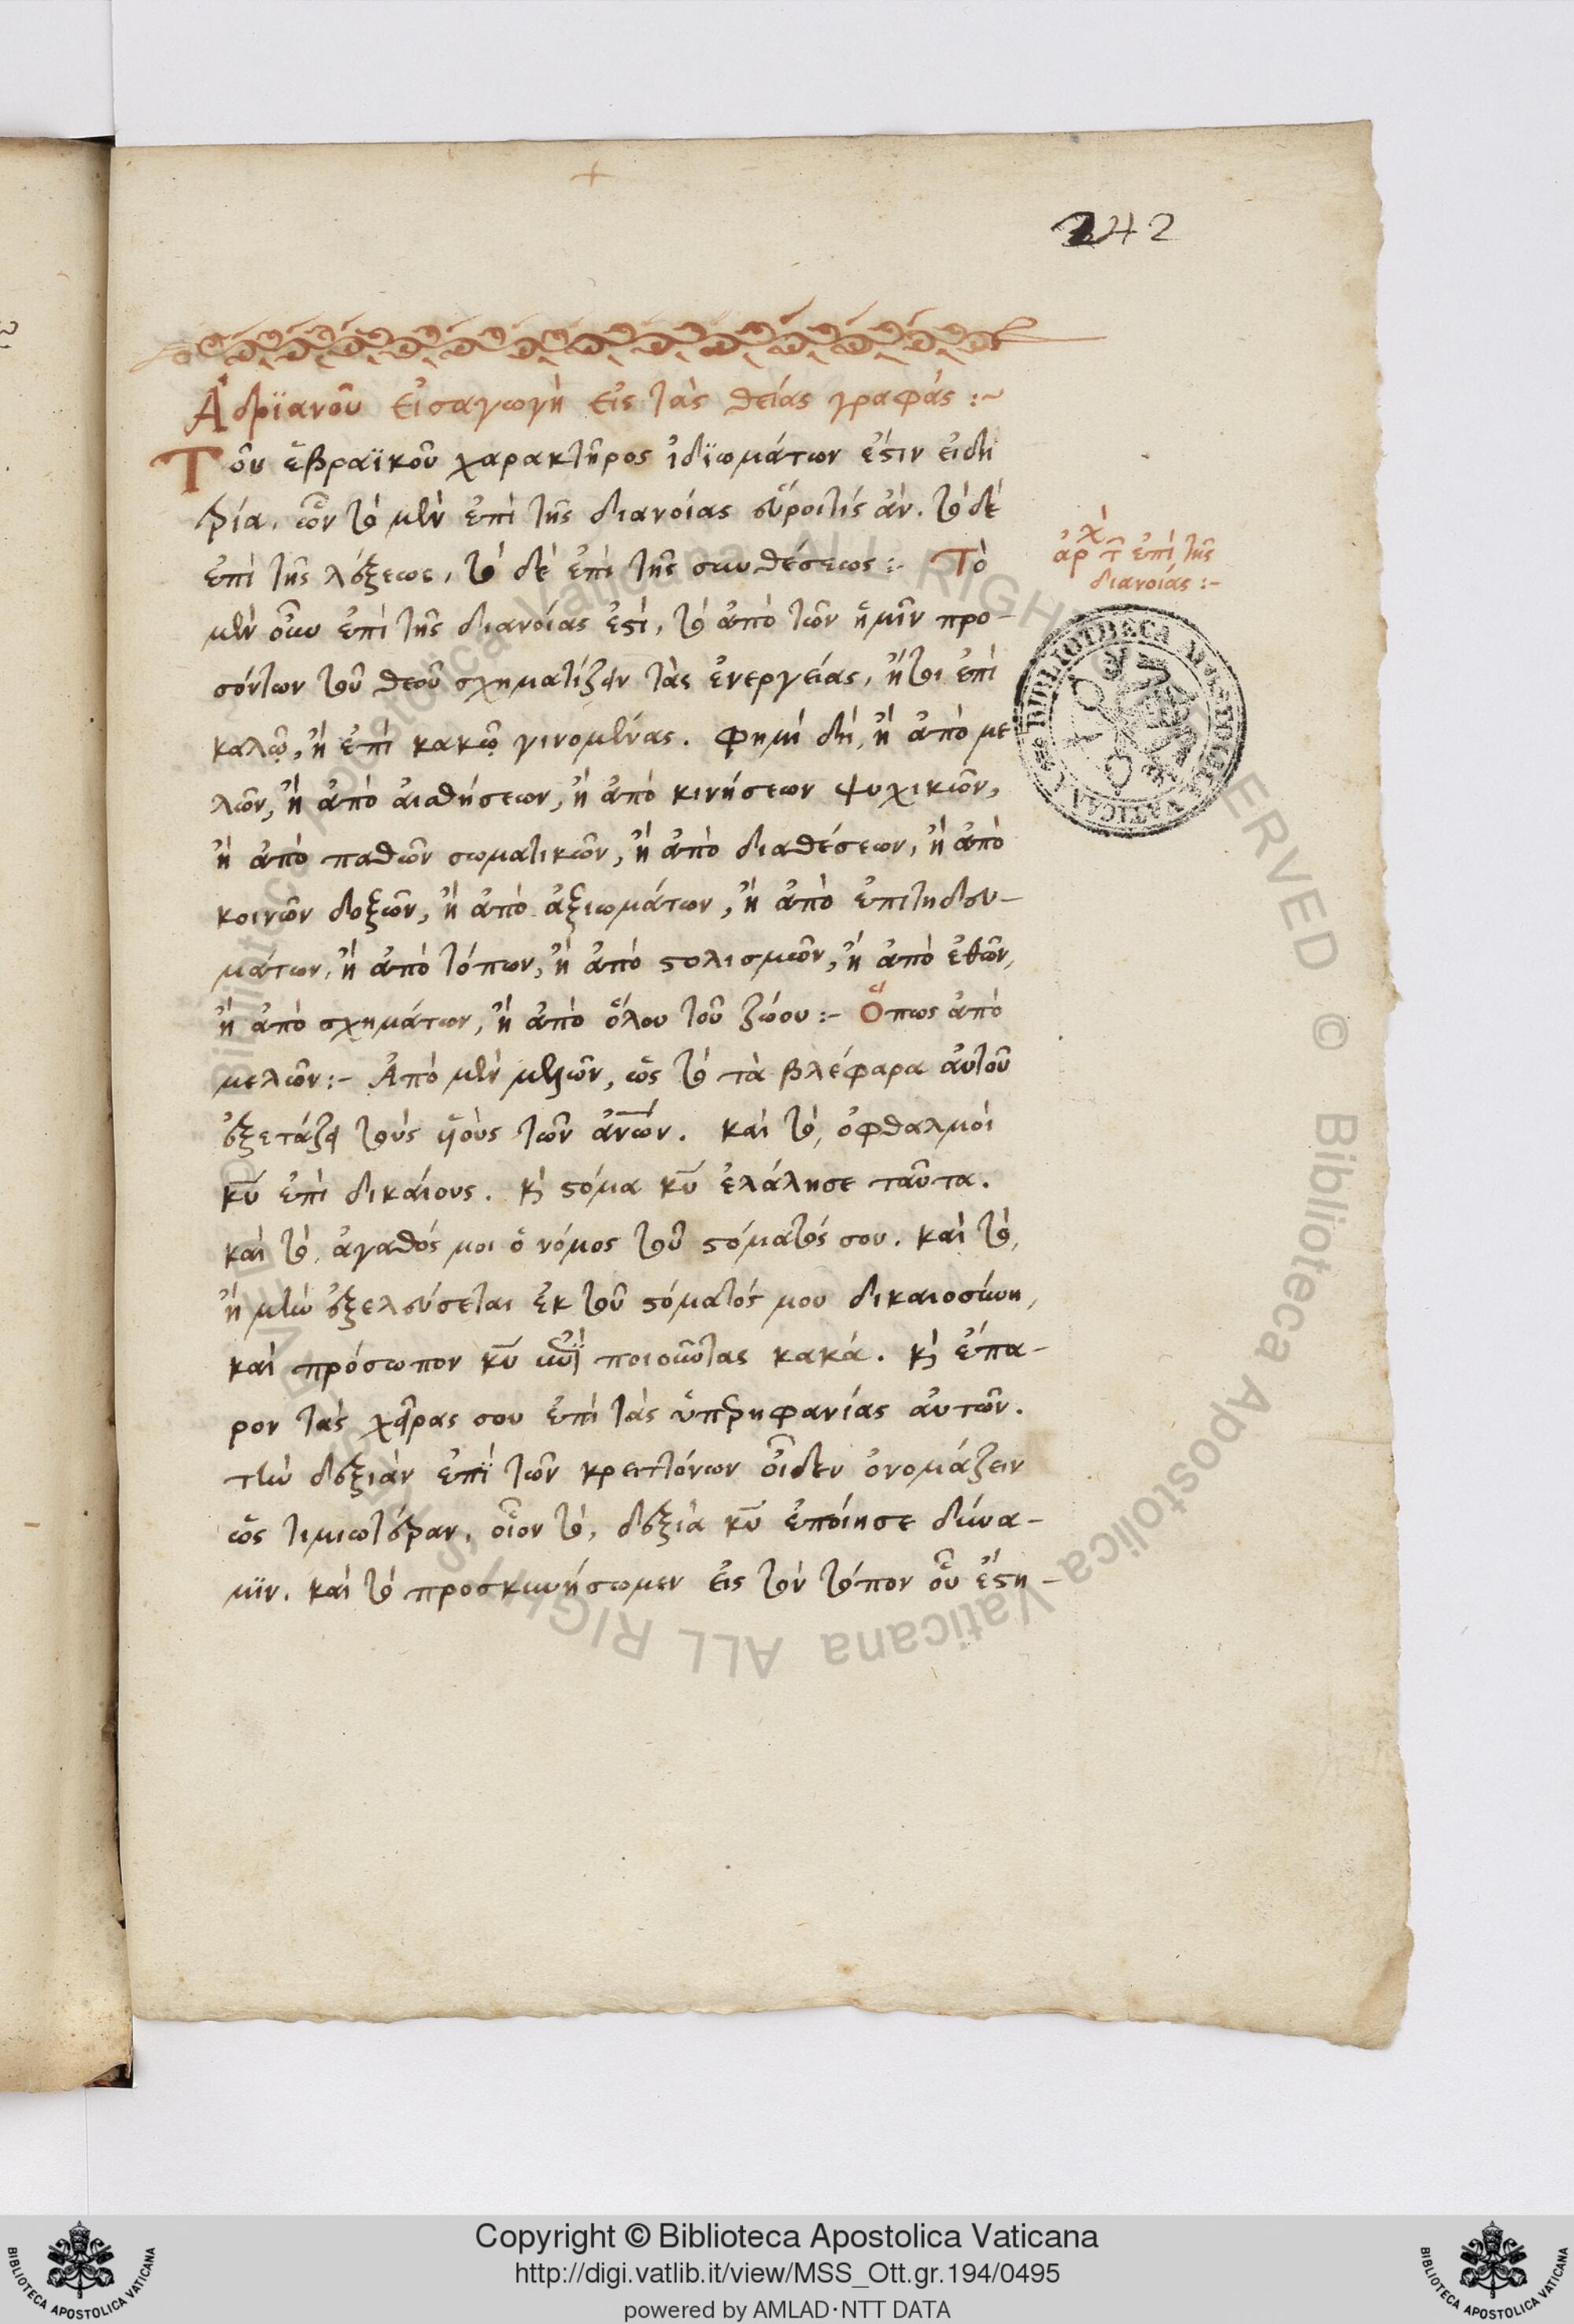 242
Ἀδρϊανοῦ εἰσαγωγὴ εἰς τὰς θείας γραφάς :~
Τοῦ ἑβραϊκοῦ χαρακτῆρος ἰδϊωμάτων ἐστιν εἴδη
τρία. ὧν τὸ μὲν ἐπὶ τῆς διανοίας εὕροι τίς ἄν. τὸ δὲ
ἐπὶ τῆς λέξεως, τὸ δὲ ἐπὶ τῆς συνθέσεως :- Τὸ
ἀρχ τ ἐπὶ τῆς
διανοίας :-
μὲν οὖν ἐπὶ τῆς διανοίας ἐστὶ, τὸ ἀπὸ τῶν ἡμῖν προ-
σόντων τοῦ θεοῦ σχηματίζειν τὰς ἐνεργείας, ἤτοι ἐπὶ
καλῷ, ἢ ἐπὶ κακῷ γινομένας. φημὶ δὴ, ἢ ἀπὸ με
λῶν, ἢ ἀπὸ αἰσθήσεων, ἢ ἀπὸ κινήσεων ψυχικῶν,
ἢ ἀπὸ παθῶν σωματικῶν, ἢ ἀπὸ διαθέσεων, ἢ ἀπὸ
κοινῶν δοξῶν, ἢ ἀπὸ ἀξιωμάτων, ἢ ἀπὸ ἐπιτηδευ-
μάτων, ἢ ἀπὸ τόπων, ἢ ἀπὸ στολισμῶν, ἢ ἀπὸ ἐθῶν,
ἢ ἀπὸ σχημάτων, ἢ ἀπὸ ὅλου τοῦ ζώου :- Ὅπως ἀπὸ
μελῶν :- Ἀπὸ μὲν μελῶν, ὡς τὸ τὰ βλέφαρα αὐτοῦ
ἐξετάζει τοὺς υἱοὺς τῶν ἀνων. καὶ τὸ, ὀφθαλμοὶ
κυ ἐπὶ δικαίους. κὶ στόμα κυ ἐλάλησε ταῦτα.
καὶ τὸ, ἀγαθός μοι ὁ νόμος τοῦ στόματός σου. καὶ τὸ,
ἢ μὴν ἐξελεύσεται ἐκ τοῦ στόματός μου δικαιοσύνη,
καὶ πρόσωπον κυ ἐπὶ ποιοῦντας κακά. κὶ ἔπα-
ρον τὰς χεῖρας σου ἐπὶ τὰς ὑπερηφανίας αὐτῶν.
τὴν δεξιὰν ἐπὶ τῶν κρειττόνων οἶδεν ὀνομάζειν
ὡς τιμιωτέραν. οἷον τὸ, δεξιὰ κυ ἐποίησε δύνα-
μϊν. καὶ τὸ προσκυνήσωμεν εἰς τὸν τόπον οὗ ἔστη-
BIBLIOTHECA APOSTOLICA VATICANA
Copyright © Biblioteca Apostolica Vaticana
http://digi.vatlib.it/view/MSS_Ott.gr.194/0495
powered by AMLAD·NTT DATA